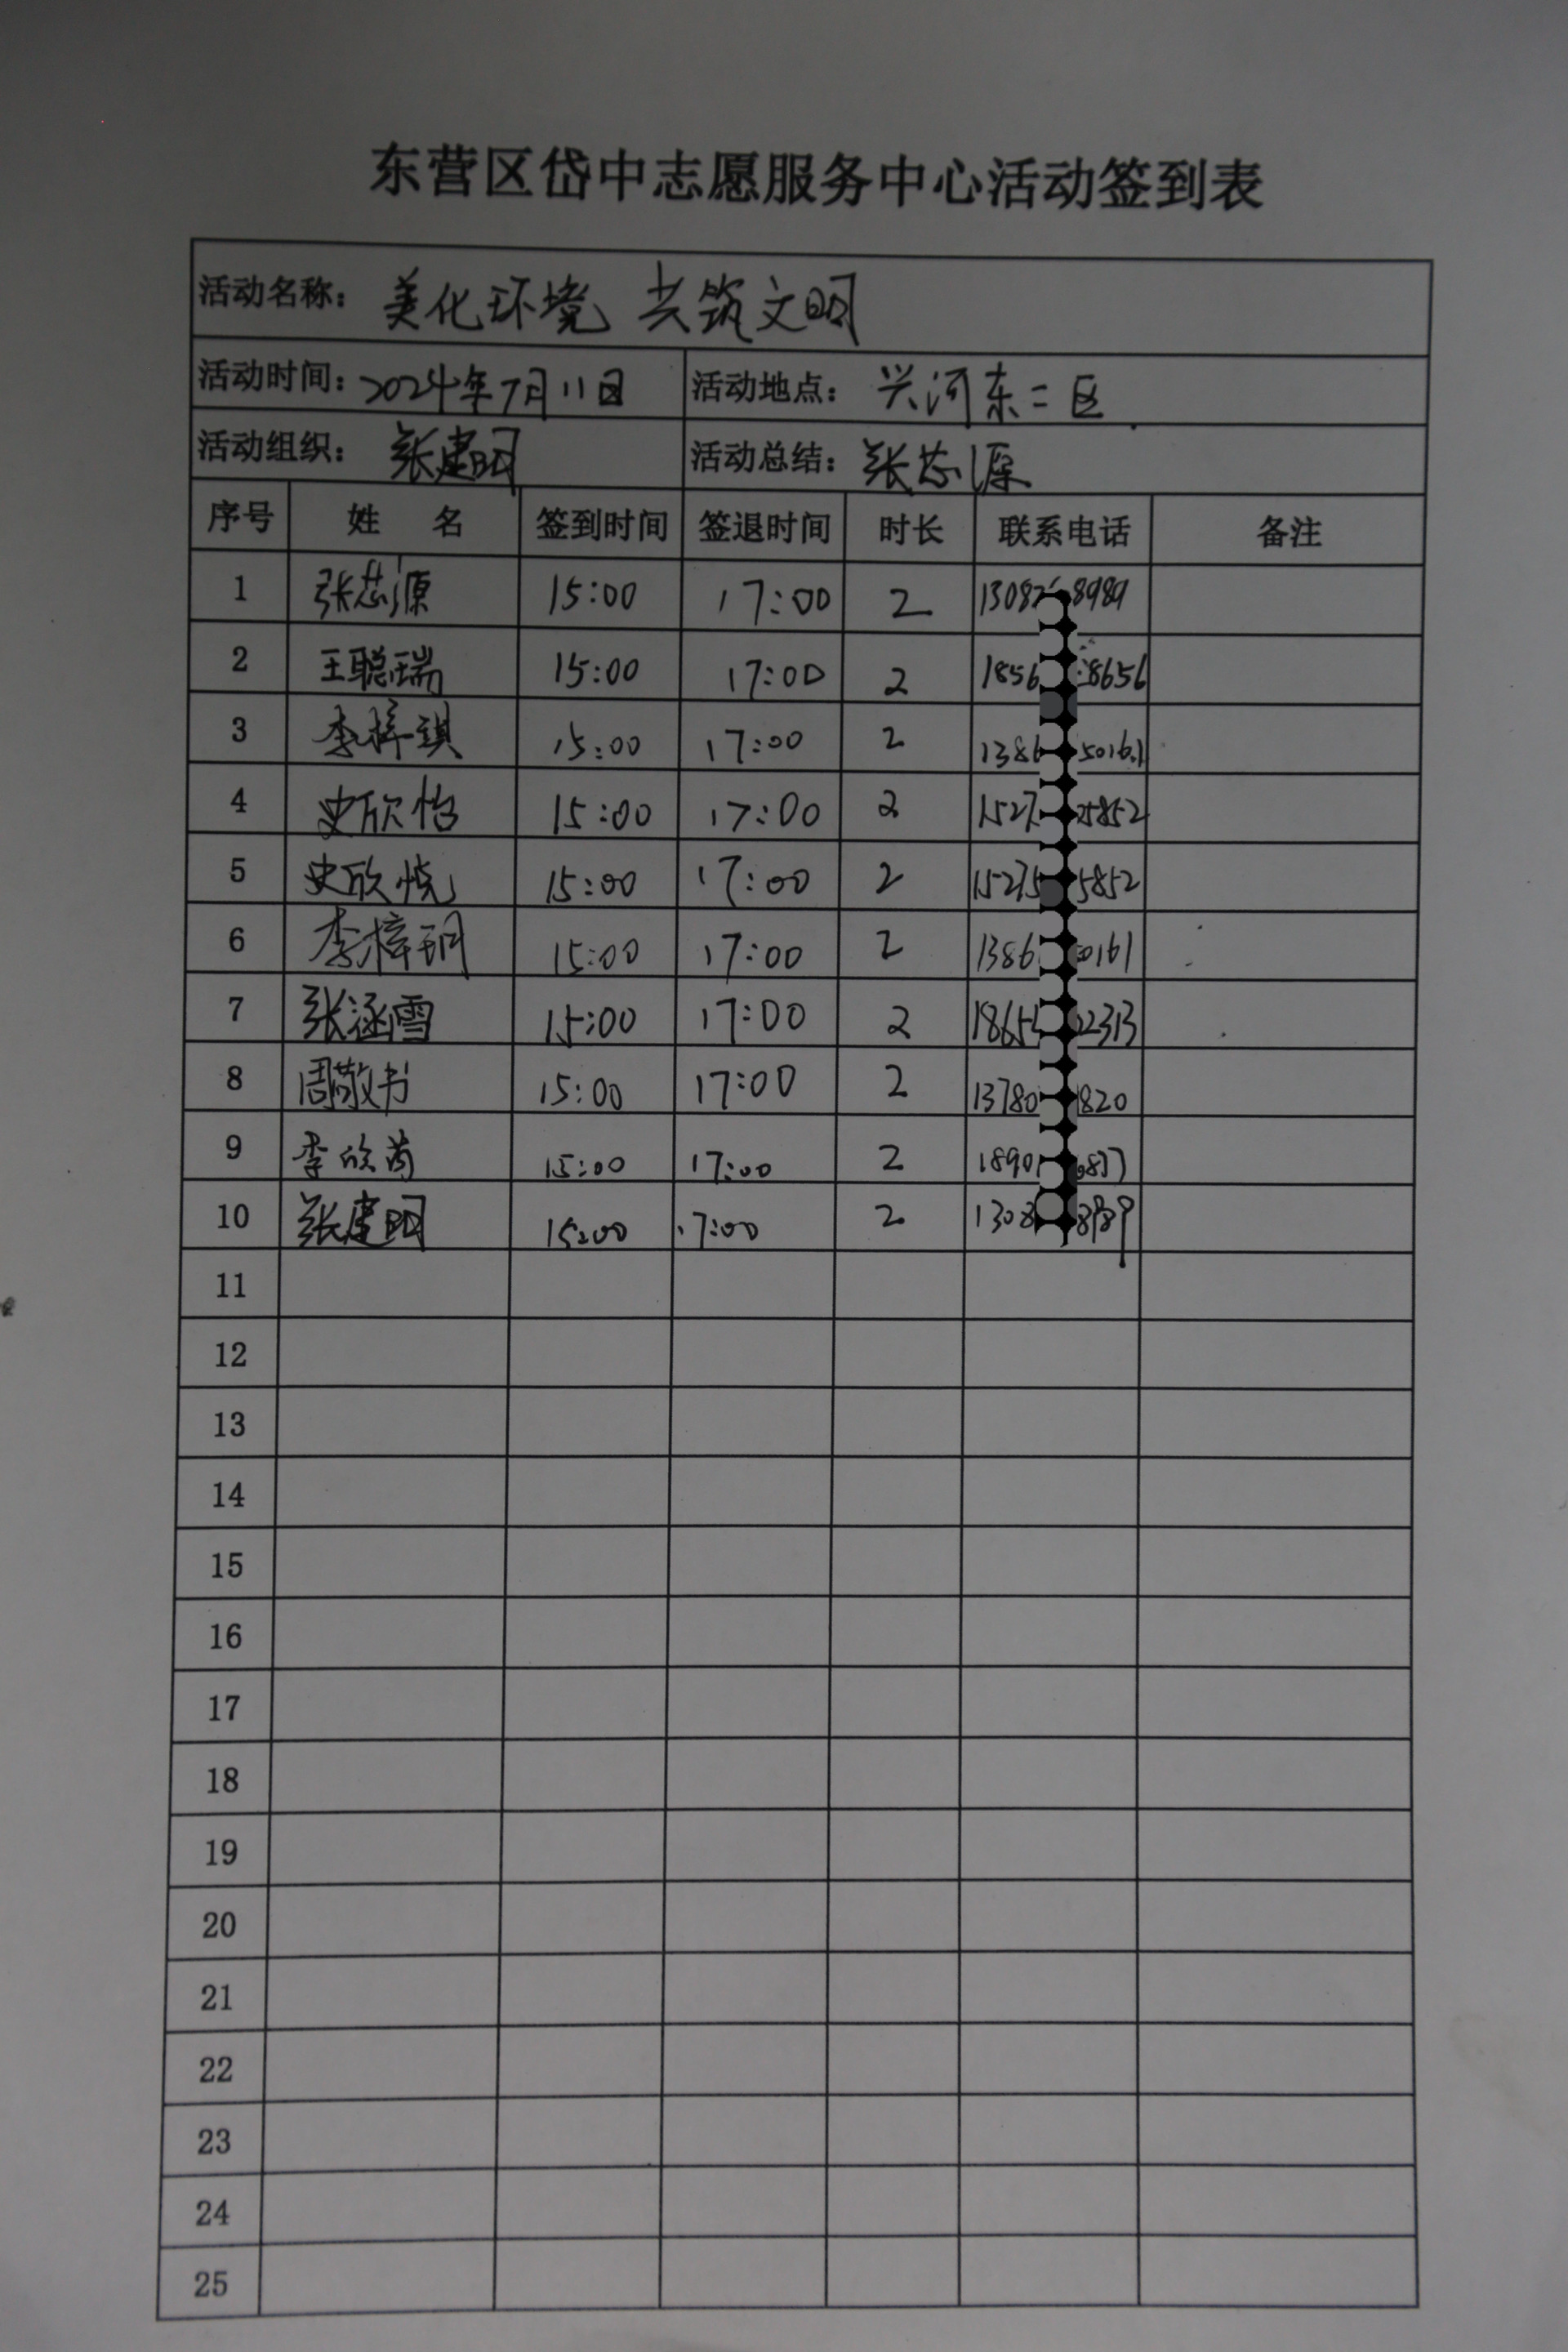 东营区岱中志愿服务中心活动签到表
活动名称: 美化环境 共筑文明
活动时间: 2024年7月11日 活动地点: 兴河东二区
活动组织: 张建明 活动总结: 张芯源
序号 姓 名 签到时间 签退时间 时长 联系电话 备注
1 张芯源 15:00 17:00 2 1308 8989
2 王聪瑞 15:00 17:00 2 1856 8656
3 李梓琪 15:00 17:00 2 1386 50161
4 史欣怡 15:00 17:00 2 1527 5852
5 史欣悦 15:00 17:00 2 15275 5852
6 李梓玥 15:00 17:00 2 1386 0161
7 张涵雪 15:00 17:00 2 1865 2313
8 周敬书 15:00 17:00 2 13780 1820
9 李欣芮 15:00 17:00 2 1890 877
10 张建明 15:00 17:00 2 1308 8989
11
12
13
14
15
16
17
18
19
20
21
22
23
24
25